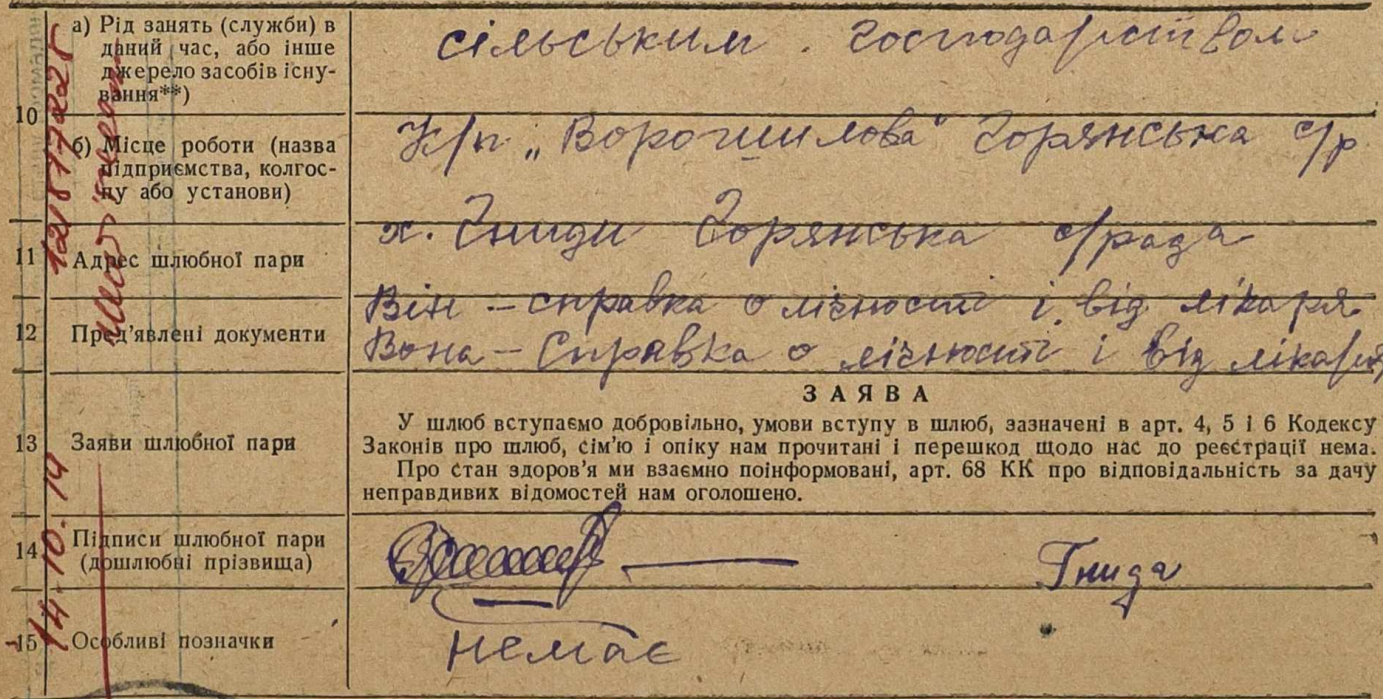 а) Рід занять (служби) в
даний час, або інше
джерело засобів існу-
вання**)
сільським господарством
10
б) Місце роботи (назва
підприємства, колгос-
пу або установи)
К/п „Ворошилова" Горянська с/р
11
Адрес шлюбної пари
х. Гниди Горянська с/рада
12
Пред'явлені документи
Він – справка о лічності і від лікаря
Вона – Справка о лічності і від лікаря
13
Заяви шлюбної пари
ЗАЯВА
У шлюб вступаємо добровільно, умови вступу в шлюб, зазначені в арт. 4, 5 і 6 Кодексу
Законів про шлюб, сім'ю і опіку нам прочитані і перешкод щодо нас до реєстрації нема.
Про стан здоров'я ми взаємно поінформовані, арт. 68 КК про відповідальність за дачу
неправдивих відомостей нам оголошено.
14
Підписи шлюбної пари
(дошлюбні прізвища)
Гнида
15
Особливі позначки
немає
14.10.14